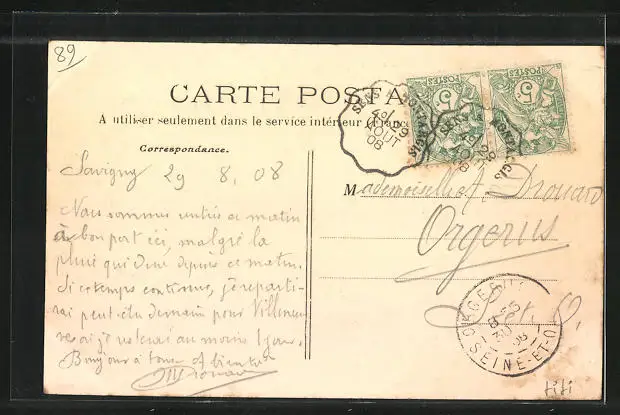 89
CARTE POSTA
A utiliser seulement dans le service intérieur (France
Correspondance.
Savigny 29 8, 08
Nous sommes entrés ce matin
à bon port ici, malgré la
pluie qui dure depuis ce matin.
Si ce temps continue, je reparti-
rai peut être demain pour Villeneu
ve où je resterai au moins 1 jour.
Bonjour à tous et bientôt
M Drouard
POSTES
5
POSTES
5
SENS
29
AOUT
08
Mademoiselle A. Drouard
Orgerus
S. et O.
ORGERUS
30
SEINE-ET-O
fifi